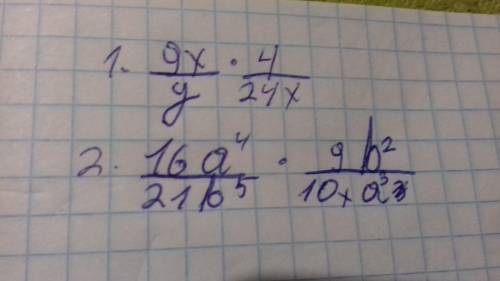 1. 9x/y · 4/24x
2. 16a⁴/21b⁵ · 9b²/10xa³